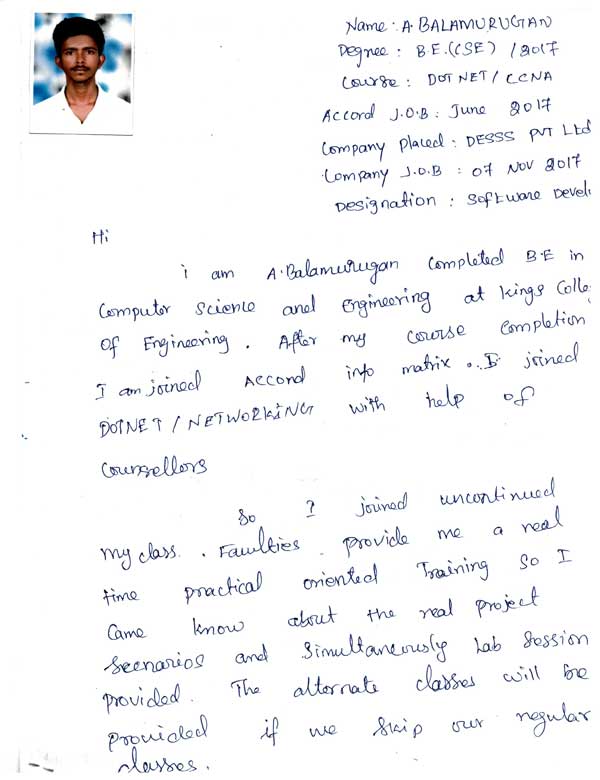 Name : A. BALAMURUGAN
Degree : B.E. (CSE) / 2017
Course : DOT NET / CCNA
Accord J.O.B : June 2017
Company Placed : DESSS PVT Ltd
Company J.O.B : 07 NOV 2017
Designation : Software Devel
Hi
i am A.Balamurugan Completed B.E in
Computor Science and Engineering at Kings Colle
Of Engineering . After my course completion
I am joined Accord info matrix . I joined
DOTNET / NETWORKING with help of
Counsellors
So I joined uncontinued
my class . Faulties . provide me a real
time practical oriented Training So I
Came know about the real project
Scenarios and Simultaneously Lab Session
provided. The alternate classes will be
provided if we skip our regular
classes.